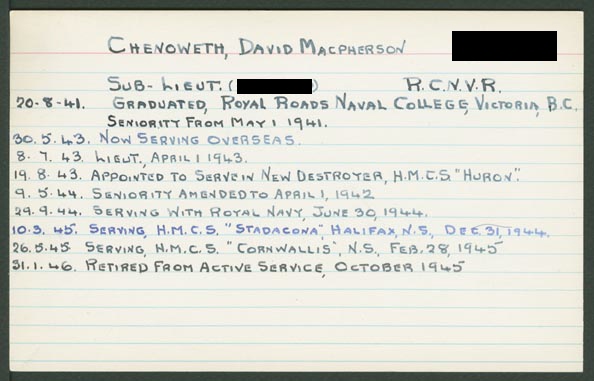 CHENOWETH, DAVID MACPHERSON
SUB-LIEUT. ( ) R.C.N.V.R.
20-8-41. GRADUATED, ROYAL ROADS NAVAL COLLEGE, VICTORIA, B.C.
SENIORITY FROM MAY 1 1941.
30.5.43. NOW SERVING OVERSEAS.
8.7.43. LIEUT., APRIL 1 1943.
19.8.43. APPOINTED TO SERVE IN NEW DESTROYER, H.M.C.S. "HURON".
9.5.44. SENIORITY AMENDED TO APRIL 1, 1942
29.9.44. SERVING WITH ROYAL NAVY, JUNE 30, 1944.
10.3.45. SERVING, H.M.C.S. "STADACONA", HALIFAX, N.S., DEC. 31, 1944.
26.5.45 SERVING, H.M.C.S. "CORNWALLIS", N.S., FEB. 28, 1945
31.1.46. RETIRED FROM ACTIVE SERVICE, OCTOBER 1945